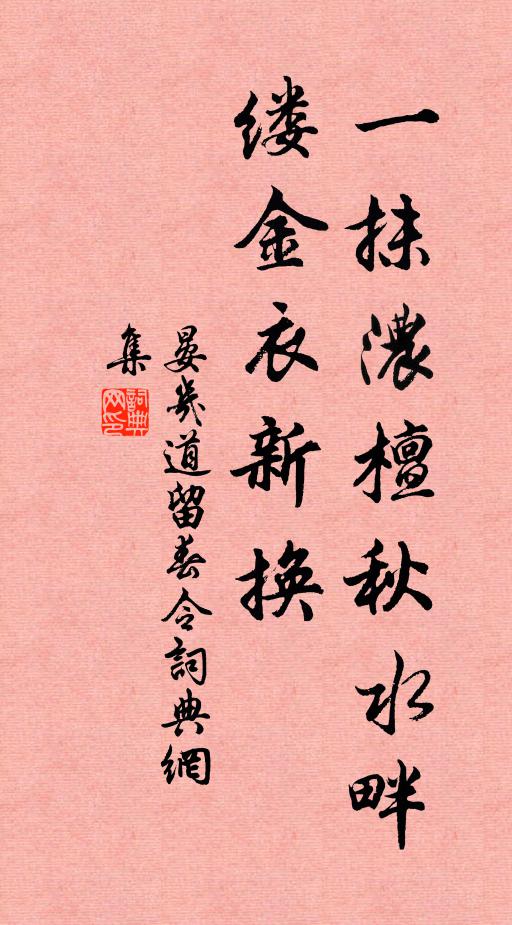 一抹濃檀秋水畔
缕金衣新换
晏幾道留春令詞典網
集
詞典
网印